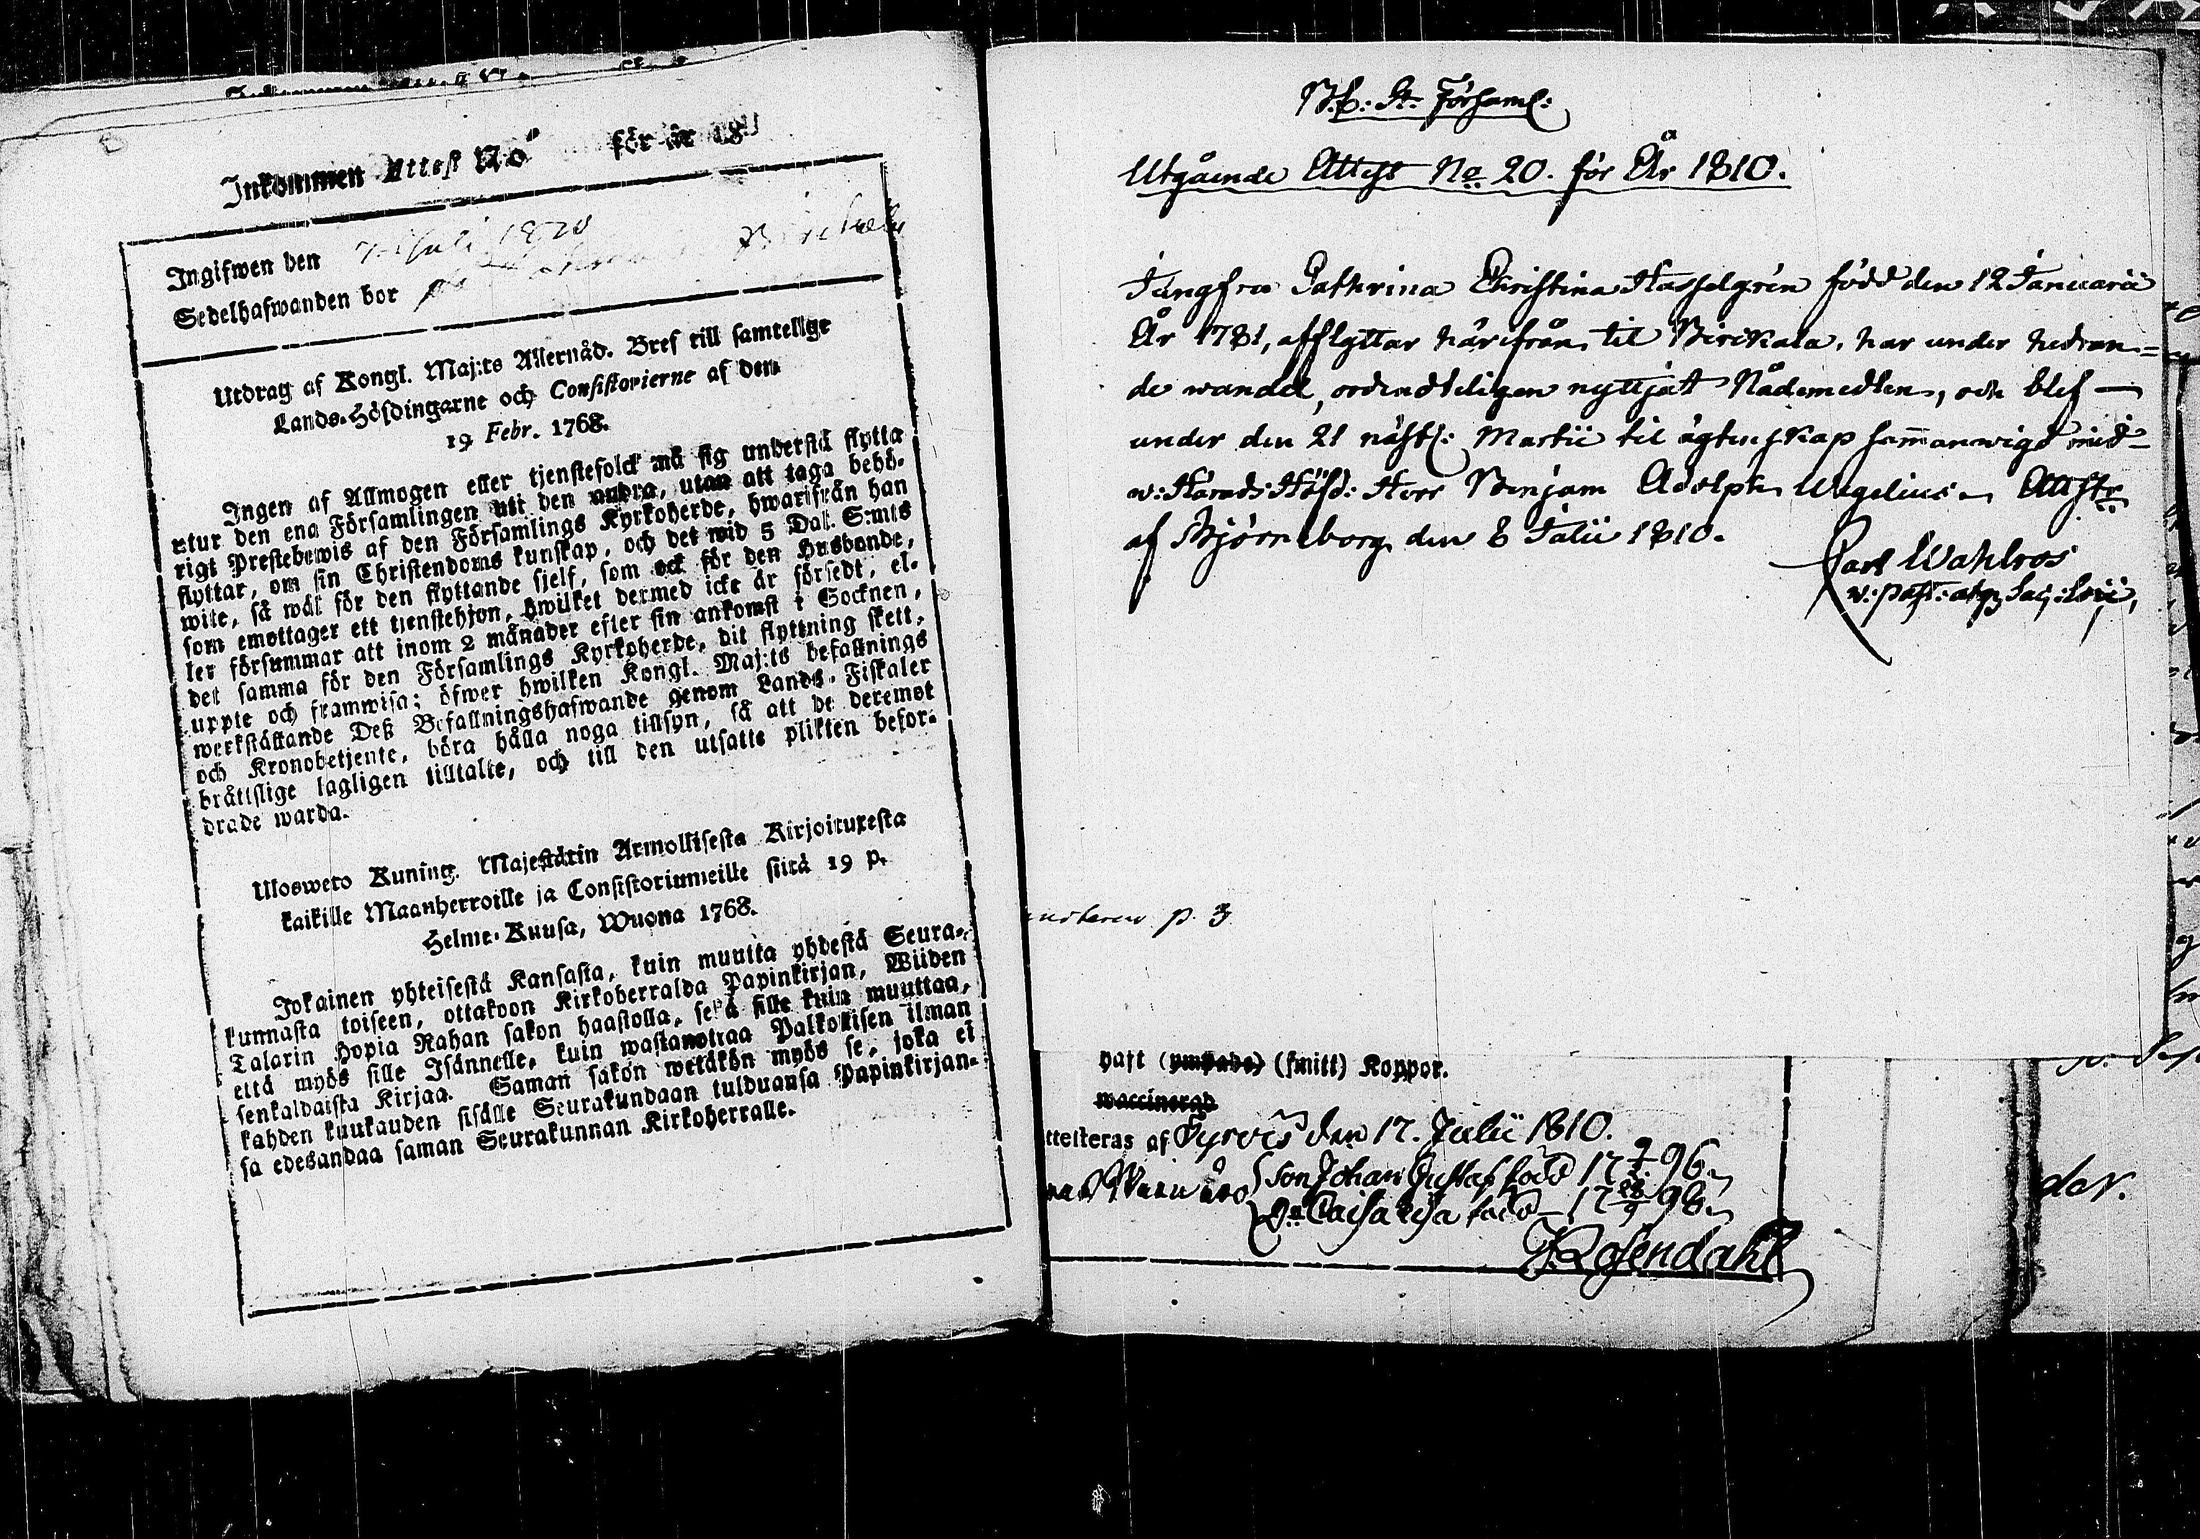 Inkommen Attest No för år 18
Ingifwen den Juli 1810
Sedelhafwanden bor Birckala
Utdrag af Kongl. Maj:ts Allernåd. Bref till samtelige
Lands-Höfdingarne och Consistorierne af den
19 Febr. 1768.
Ingen af Allmogen eller tjenstefolck må sig understå flytta
utur den ena Församlingen uti den andra, utan att taga behö-
rigt Prestebewis af den Församlings Kyrkoherde, hwarifrån han
flyttar, om sin Christendoms kunskap, och det wid 5 Dal. S:mts
wite, så wäl för den flyttande sjelf, som ock för den Husbonde,
som emottager ett tjenstehjon, hwilket dermed icke är försedt, el-
ler försummar att inom 2 månader efter sin ankomst i Socknen,
det samma för den Församlings Kyrkoherde, dit flyttning skett,
uppte och framwisa; öfwer hwilken Kongl. Maj:ts befallnings
werkställande Deß Befallningshafwande genom Lands-Fiskaler
och Kronobetjente, böra hålla noga tillsyn, så att de deremot
bråttslige lagligen tilltalte, och till den utsatte plikten befor-
drade warda.
Uloswero Kuning. Majestätin Armollisesta Kirjoituxesta
kaikille Maanherroille ja Consistoriumeille siitä 19 p.
Helme-Kuusa, Wuona 1768.
Jokainen yhteisestä Kansasta, kuin muutta yhdestä Seura-
kunnasta toiseen, ottakoon Kirkoherralda Papinkirjan, Wiiden
Talarin Hopia Rahan sakon haastolla, sekä sille kuin muuttaa,
että myös sille Isännelle, kuin wastanottaa Palkollisen ilman
senkaldaista Kirjaa. Saman sakon wetäkön myös se, joka ei
kahden kuukauden sisälle Seurakundaan tulduansa Papinkirjan-
sa edesandaa saman Seurakunnan Kirkoherralle.
St. Församl:
Utgående Attest No 20. för År 1810.
Jungfru Cathrina Christina Hasselgrén född den 12 Januarii
År 1781, afflyttar härifrån til Birckala, har under hedran=
de wandel, ordendteligen nyttjat Nådemedlen, och blef
under den 21 nästl: Martii til ägtenskap samanwigd med
v: Härads Höfd: Herr Benjam Adolph Wegelius. Attstr
af Björneborg den 8 Julii 1810.
Carl Wahlros
v: past:
p. 3
haft (ymhade) (smitt) Koppor.
waccinerad
ttesteras af Tyrvis den 17. Julii 1810.
Son Johan Gustaf född 17 9/7 96.
D:r Caisa Lisa född 17 28/9 98.
Rosendahl
dar.